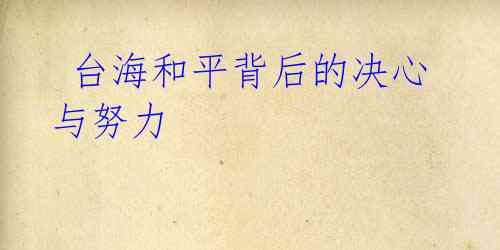 台海和平背后的决心
与努力